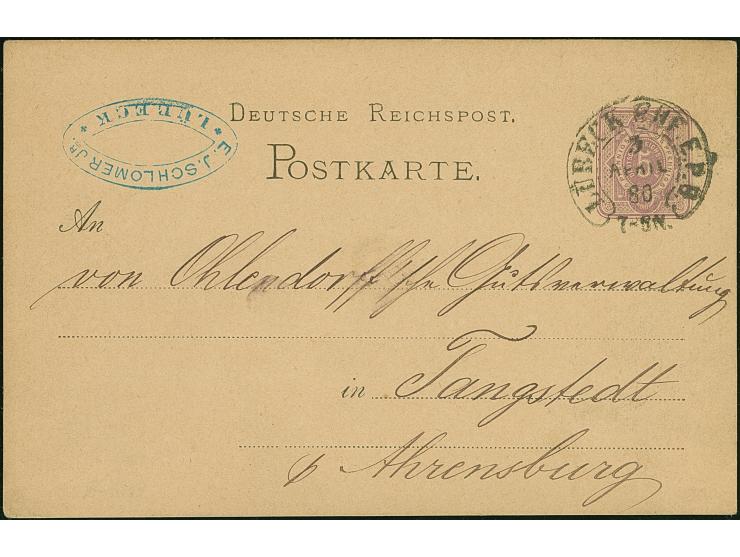 E. J. SCHLOMER JR.
* LÜBECK *
DEUTSCHE REICHSPOST.
POSTKARTE.
LÜBECK
3
APRIL
80
7-8N.
An
von Ohlendorff'sche Gutsverwaltung
in Tangstedt
p Ahrensburg